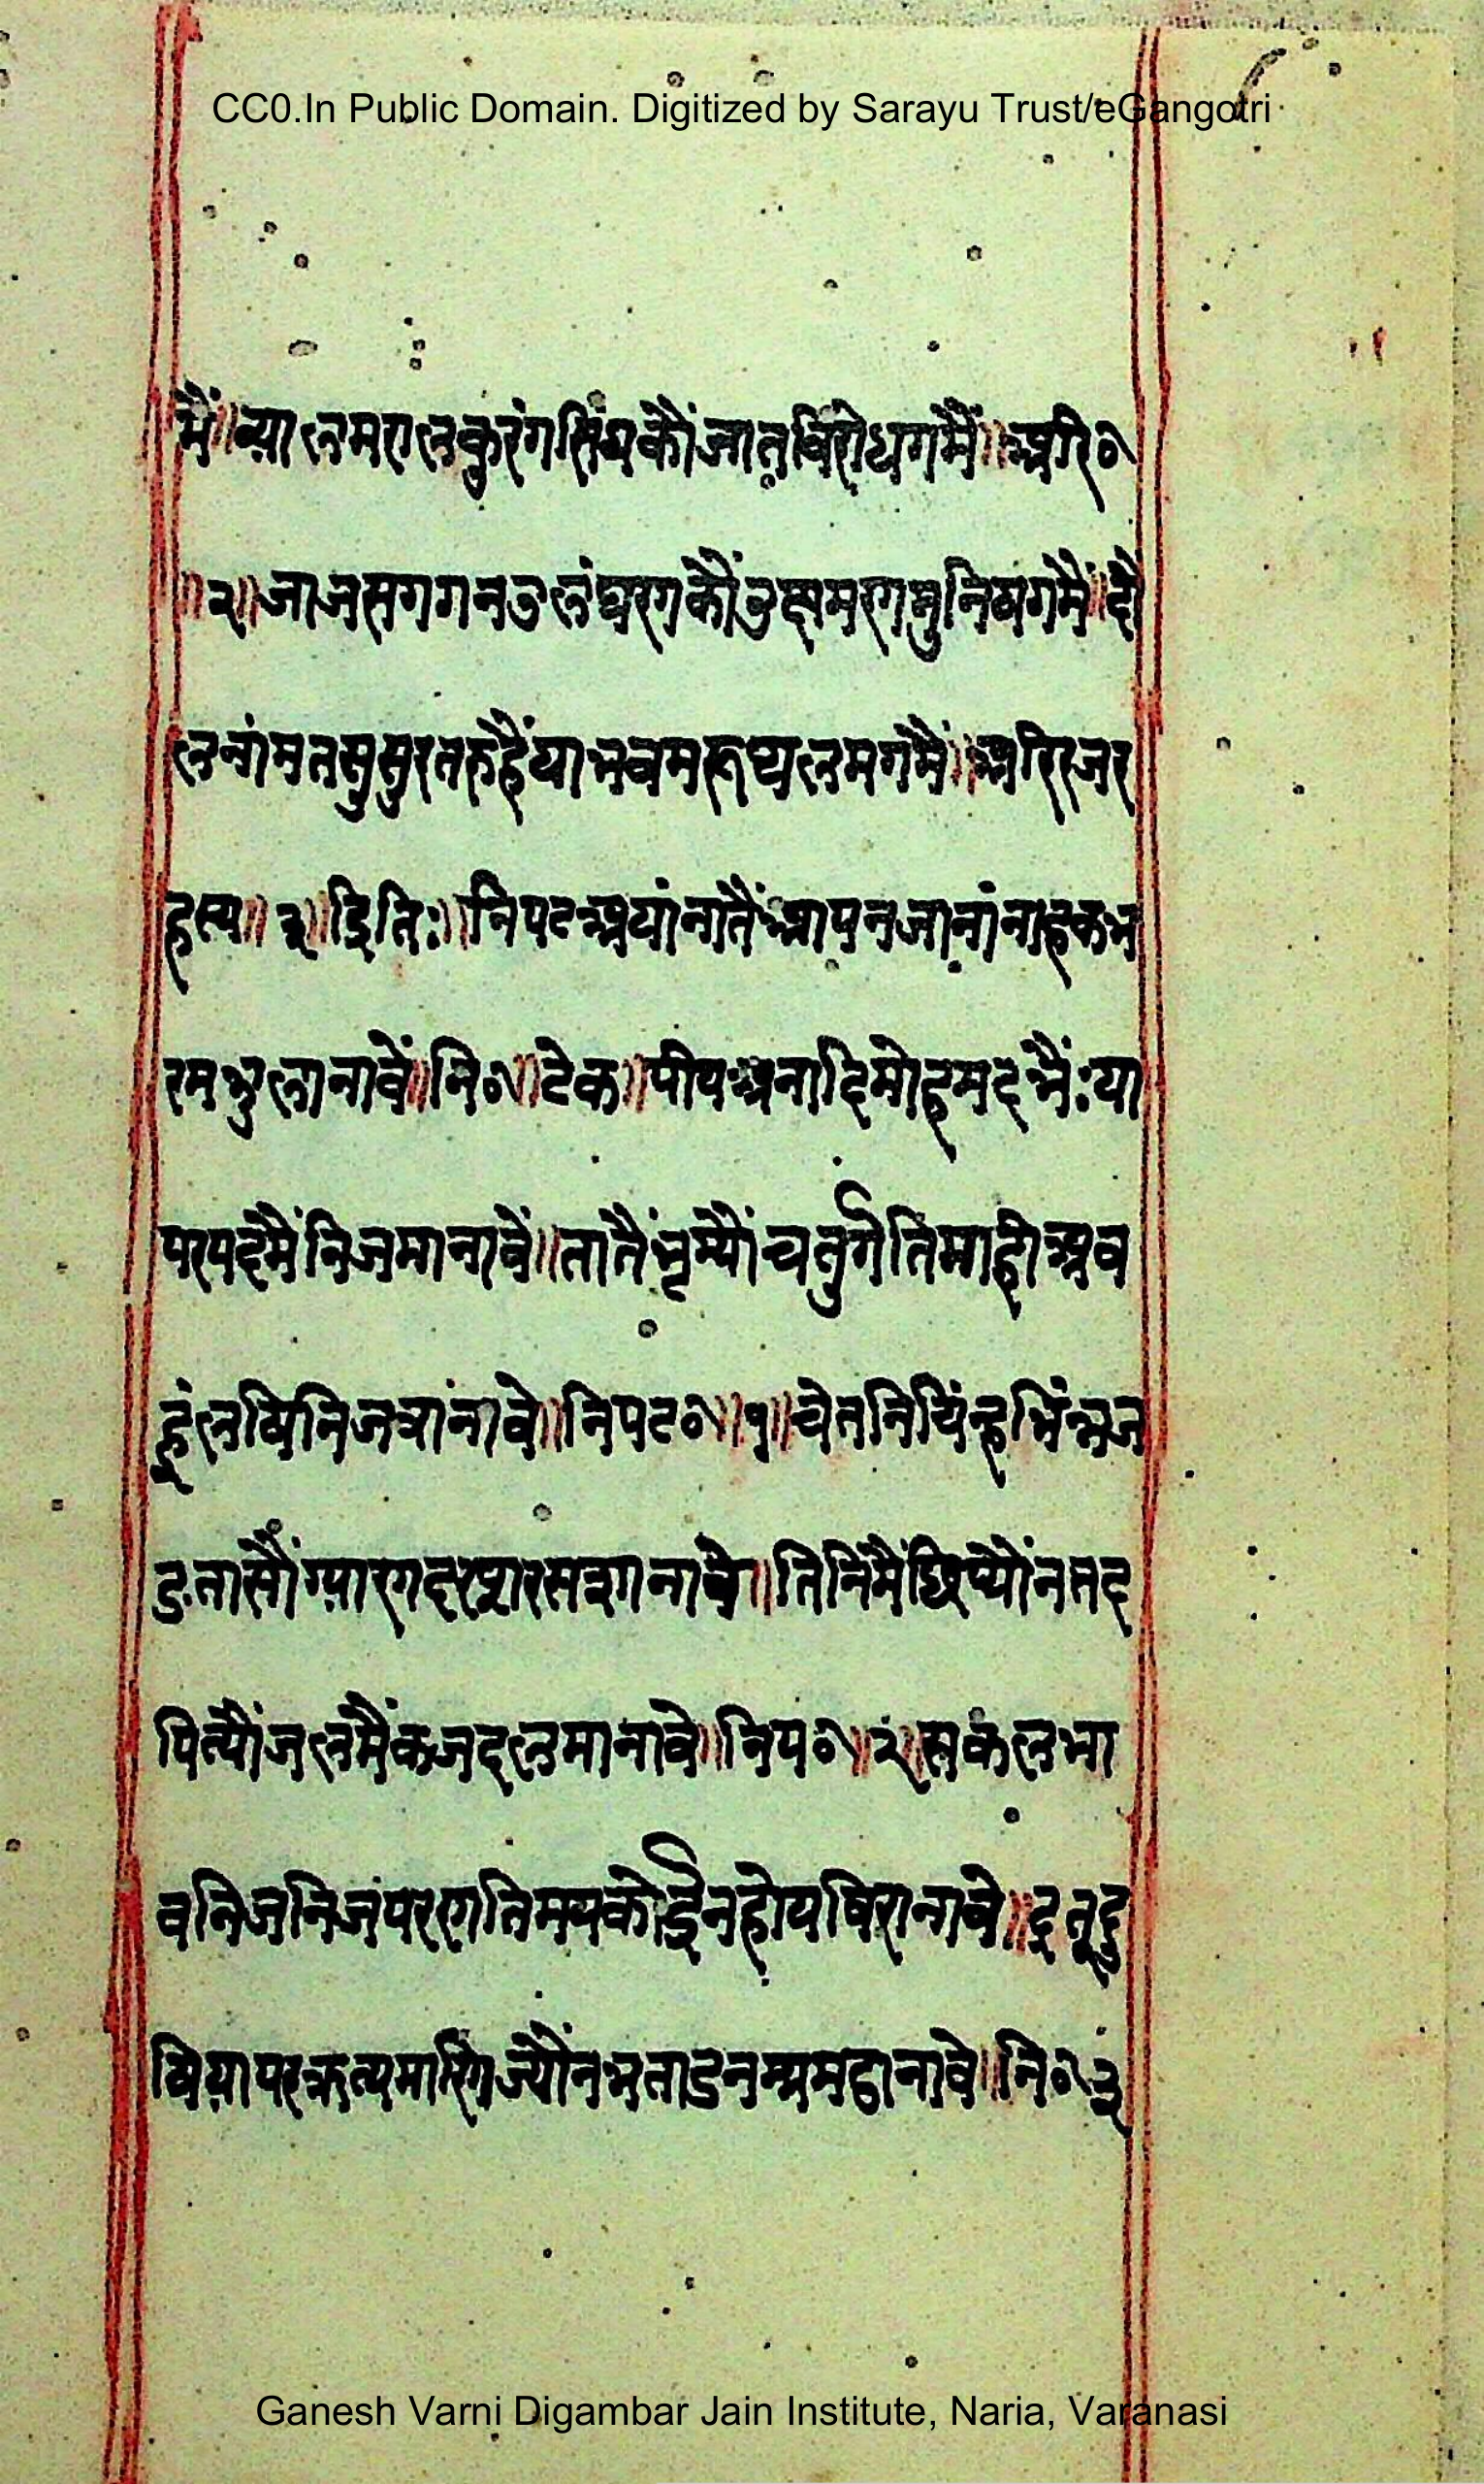 CC0.In Public Domain. Digitized by Sarayu Trust/eGangotri
मैं॥ व्यालमरालकुरंगसिंघकौंजातविरोधगमैं॥ अरि॰
॥२॥ जाजसगगनउलंघणकौंउछमरणमुनिषगमैं॥ दौ
लनांमतसुसुरतरुहैंयाभवमरूथलमगमैं॥ अरिरजर
हस्य॥ ३॥ इति:॥ निपटअयांनातैंआपनजानांनाहकभ
रमभुलानावें॥ नि॰॥ टेक॥ पीयअनादिमोहमदभैंःया
परपदमैंनिजमानावें॥ तातैंभृम्यौंचतुर्गतिमाहीअव
हूंलषिनिजत्रांनावे॥ निपट॰॥ १॥ चेतनिचिंन्हभिंन्नज
डतासौंग्यारगदरशरससानावे॥ तिनिंमैंछिप्यौंनतद
पिल्यौंजलमैंकजदलमानावे॥ निप॰॥ २॥ सकलभा
वनिजनिजपरणतिमयकोईनहोयविरानावे॥ दूतूदु
षियापरक्रत्यमारिगज्यौंनभताडनम्रमहानावे॥ नि॰॥३
Ganesh Varni Digambar Jain Institute, Naria, Varanasi